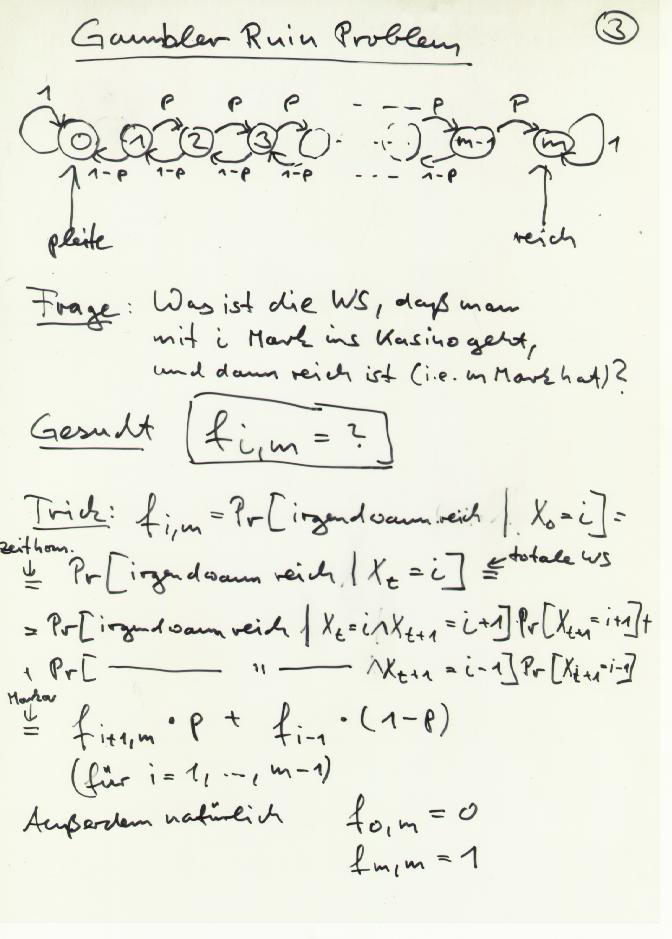 Gambler Ruin Problem
3
1 p p p - - - - p p
0 1 2 3 m-1 m 1
1-p 1-p 1-p 1-p - - - 1-p
pleite reich
Frage: Was ist die WS, daß man
mit i Mark ins Kasino geht,
und dann reich ist (i.e. m Mark hat)?
Gesucht f_{i,m} = ?
Trick: f_{i,m} = Pr[irgendwann reich | X_0 = i] =
zeithom. ↓ = Pr[irgendwann reich | X_t = i] = ← totale WS
= Pr[irgendwann reich | X_t = i ∧ X_{t+1} = i+1]·Pr[X_{t+1} = i+1] +
+ Pr[ ——— " ——— ∧ X_{t+1} = i-1] Pr[X_{t+1} = i-1]
Markov ↓ = f_{i+1,m} · p + f_{i-1} · (1-p)
(für i = 1, ..., m-1)
Außerdem natürlich f_{0,m} = 0
f_{m,m} = 1